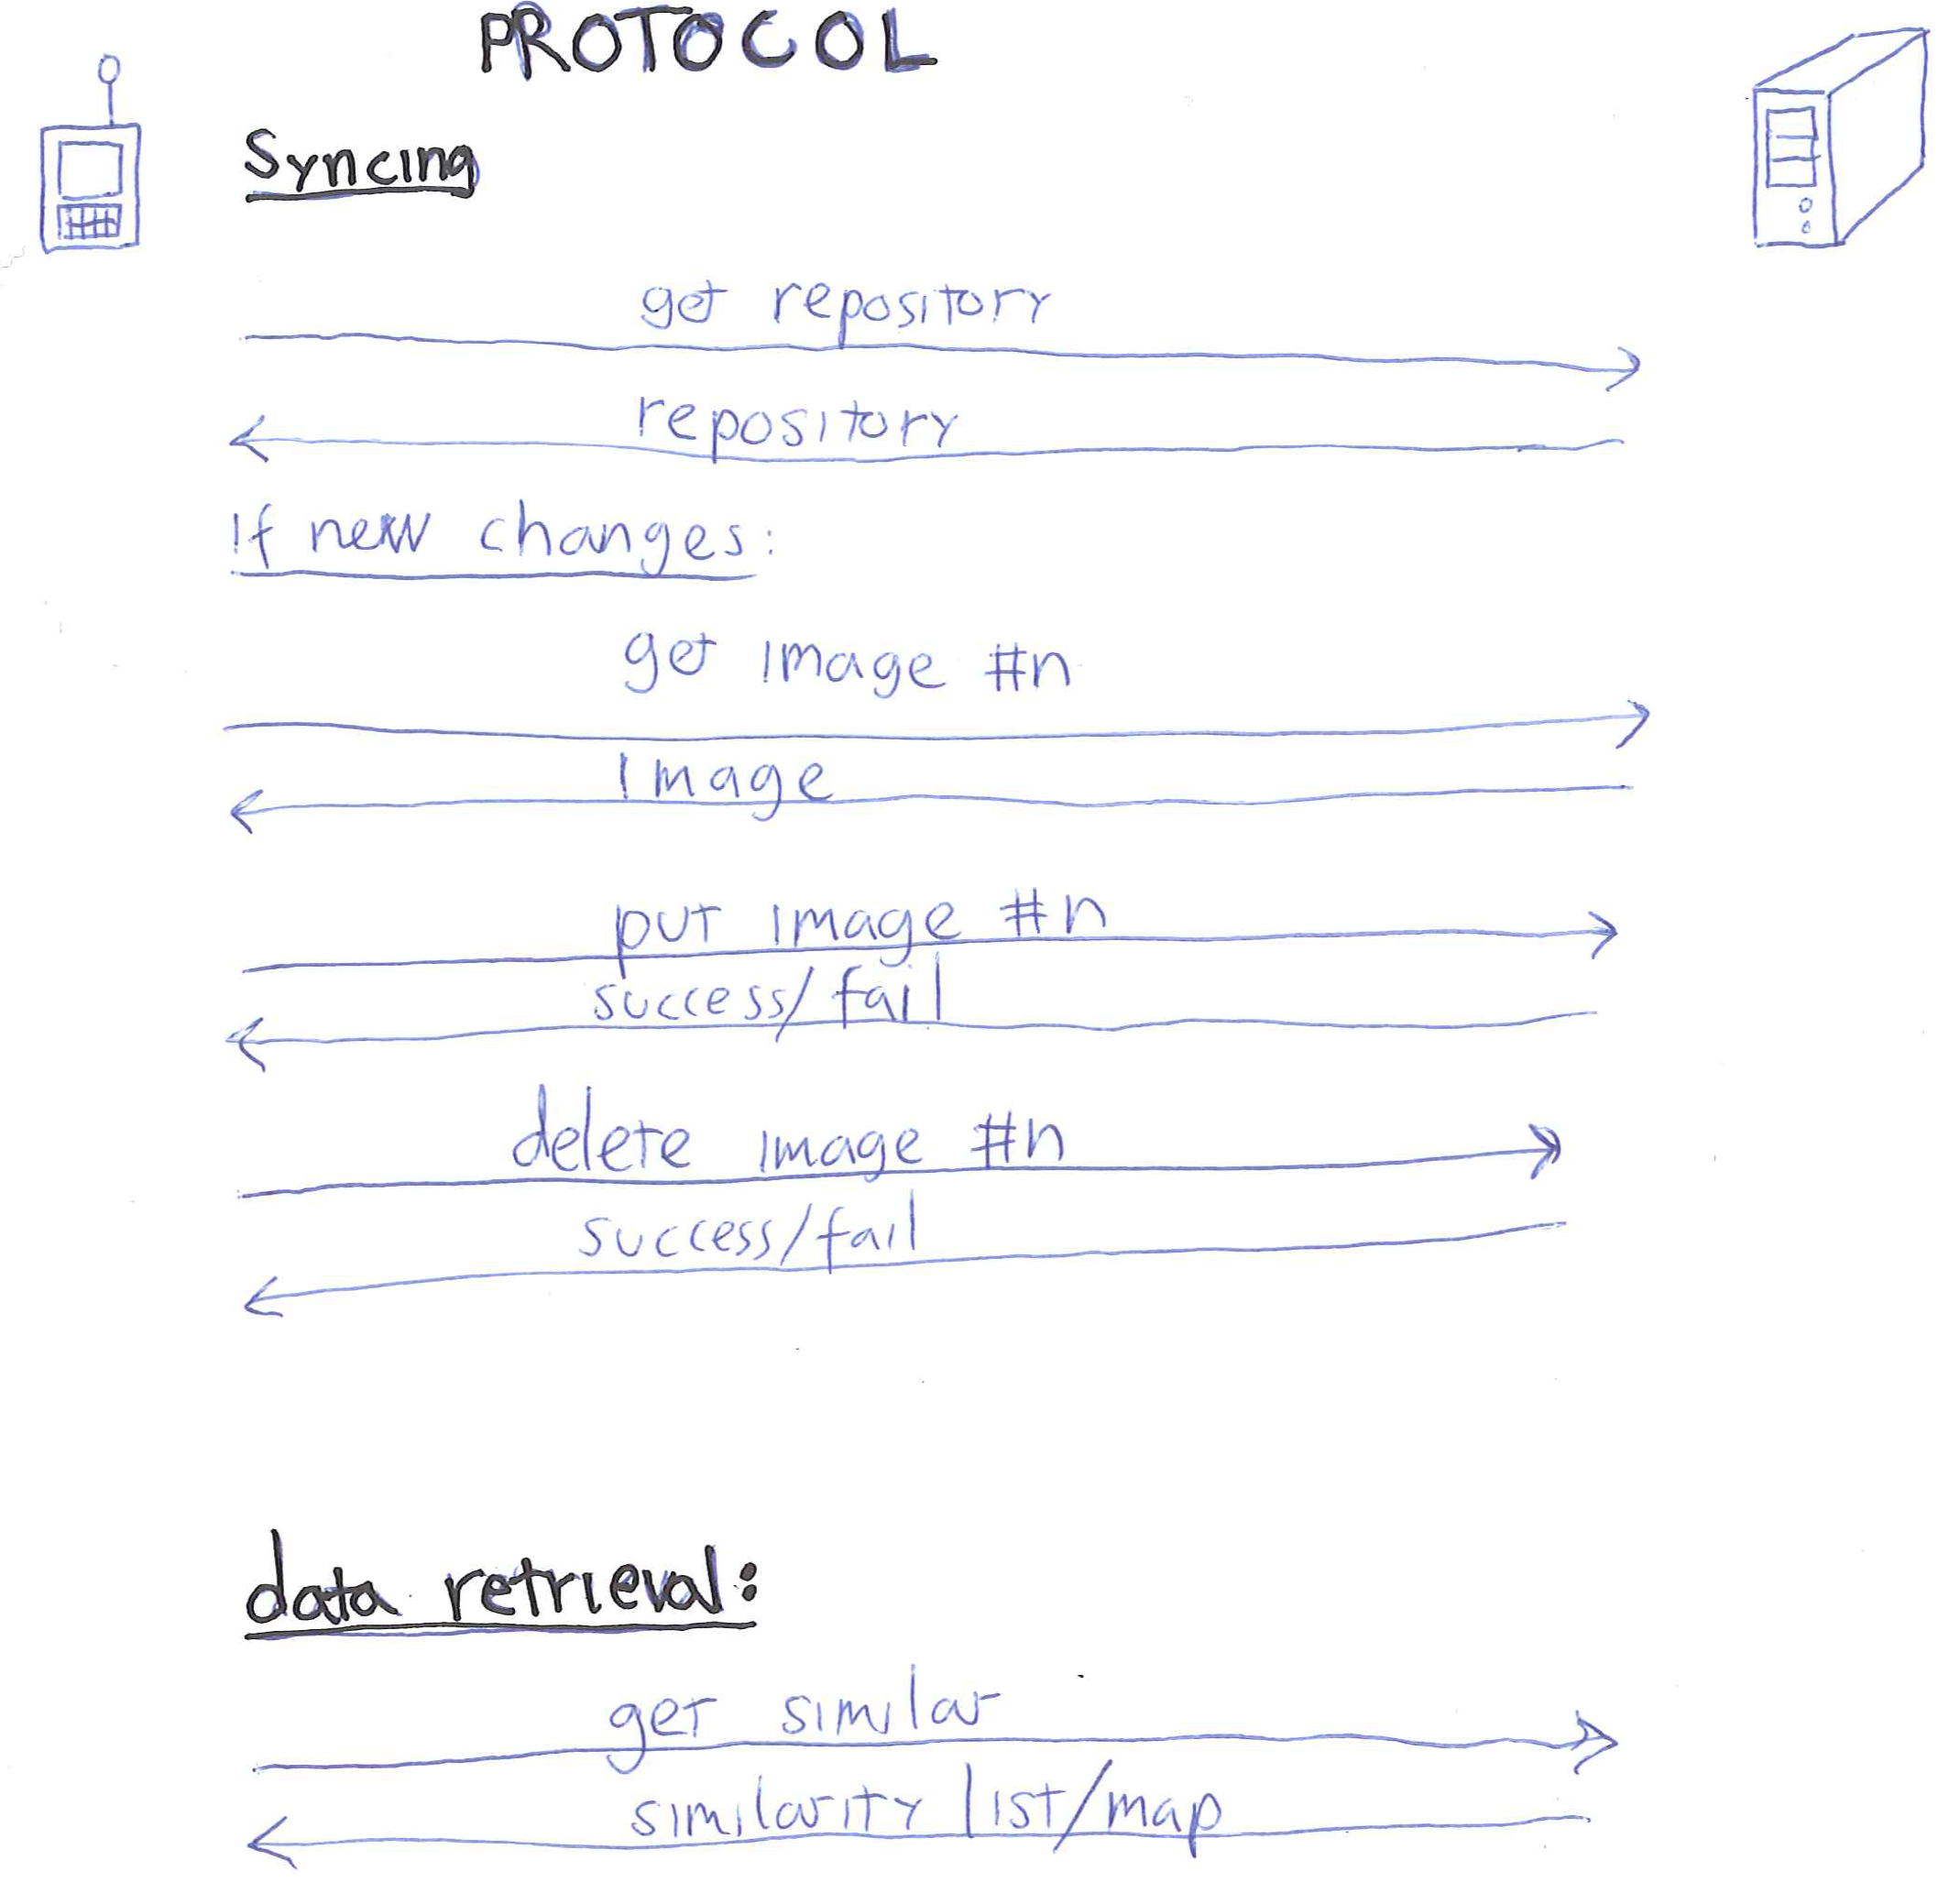 PROTOCOL
Syncing
get repository
repository
If new changes:
get image #n
Image
put image #n
success/fail
delete image #n
success/fail
data retrieval:
get similar
similarity list/map